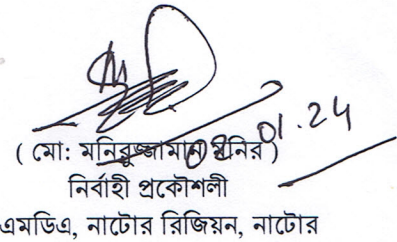 ০৪.০১.২৪
( মো: মনিরুজ্জামান মনির )
নির্বাহী প্রকৌশলী
এমডিএ, নাটোর রিজিয়ন, নাটোর